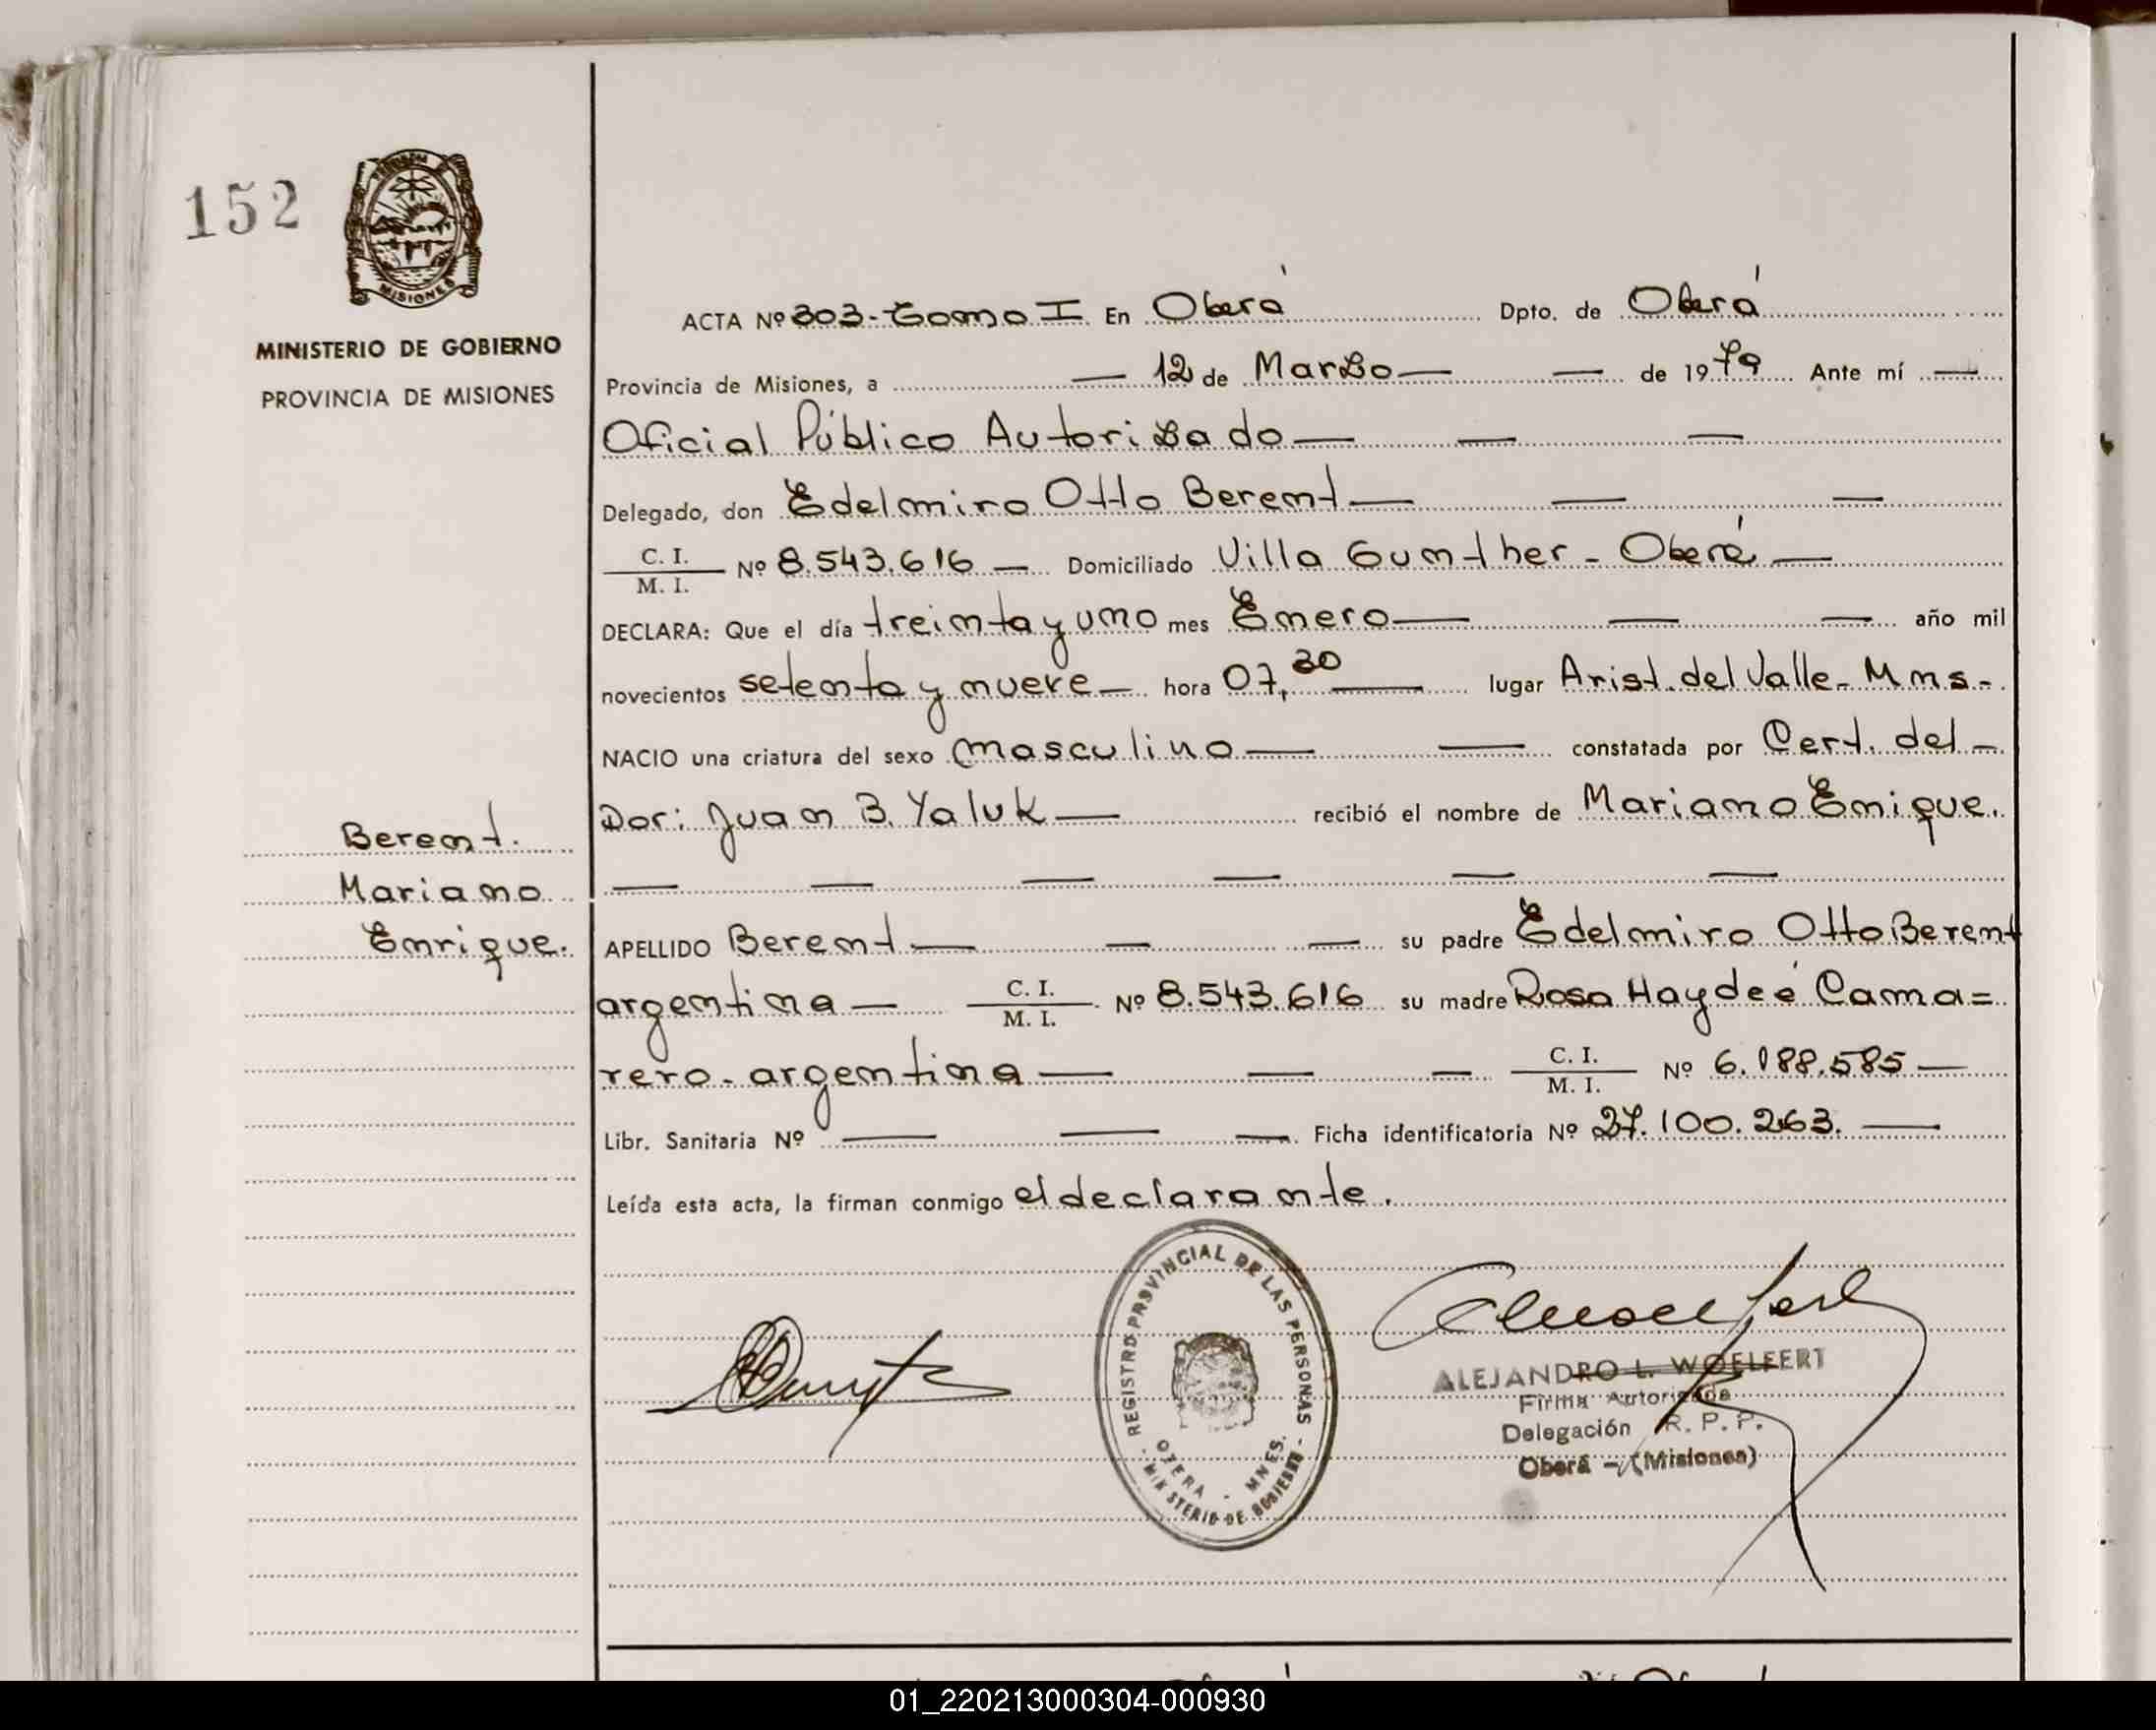 152
MISIONES
MINISTERIO DE GOBIERNO
PROVINCIA DE MISIONES
ACTA Nº 303 - Tomo I En Oberá Dpto. de Oberá
Provincia de Misiones, a — 12 de Marzo — — de 1979 Ante mí —
Oficial Público Autorizado — — —
Delegado, don Edelmiro Otto Berent — — —
C. I.
M. I. Nº 8.543.616 — Domiciliado Villa Gunther - Oberá —
DECLARA: Que el día treinta y uno mes Enero — — — año mil
novecientos setenta y nueve — hora 07,30 — lugar Arist. del Valle - Mns -
NACIO una criatura del sexo masculino — — constatada por Cert. del —
Dor: Juan B. Yaluk — recibió el nombre de Mariano Enique.
— — — — — —
Berent.
Mariano
Enrique.
APELLIDO Berent — — — su padre Edelmiro Otto Berent
argentina — C. I.
M. I. Nº 8.543.616 su madre Rosa Haydeé Cama=
rero - argentina — — — C. I.
M. I. Nº 6.188.585 —
Libr. Sanitaria Nº — — — Ficha identificatoria Nº 27.100.263. —
Leída esta acta, la firman conmigo el declarante.
REGISTRO PROVINCIAL DE LAS PERSONAS
OBERA - MNES.
MINISTERIO DE GOBIERNO
ALEJANDRO L. WOELFERT
Firma Autorizada
Delegación R. P. P.
Oberá - (Misiones)
01_220213000304-000930